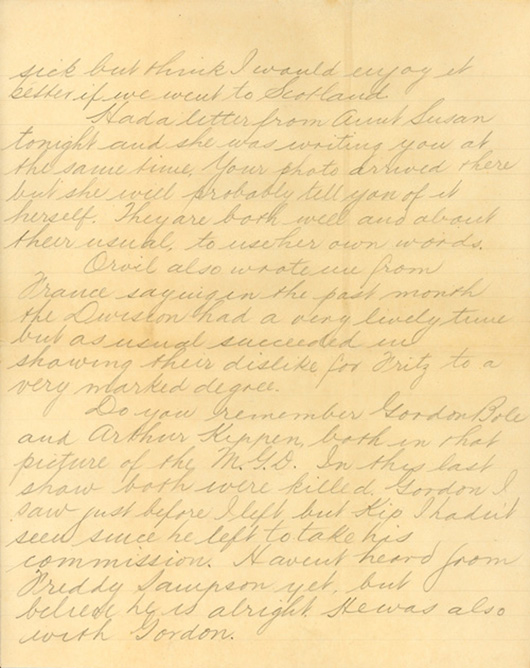 sick but think I would enjoy it
better if we went to Scotland
Had a letter from Aunt Susan
tonight and she was writing you at
the same time. Your photo arrived there
but she will probably tell you of it
herself. They are both well and about
their usual, to use her own words.
Orvil also wrote me from
France saying in the past month
the Division had a very lively time
but as usual succeeded in
showing their dislike for Fritz to a
very marked degree.
Do you remember Gordon Bole
and Arthur Kippen, both in that
picture of the M.G.D. In this last
show both were killed. Gordon I
saw just before I left but Kip I hadn't
seen since he left to take his
commission. Havent heard from
Freddy Sampson yet, but
believe he is alright. He was also
with Gordon.